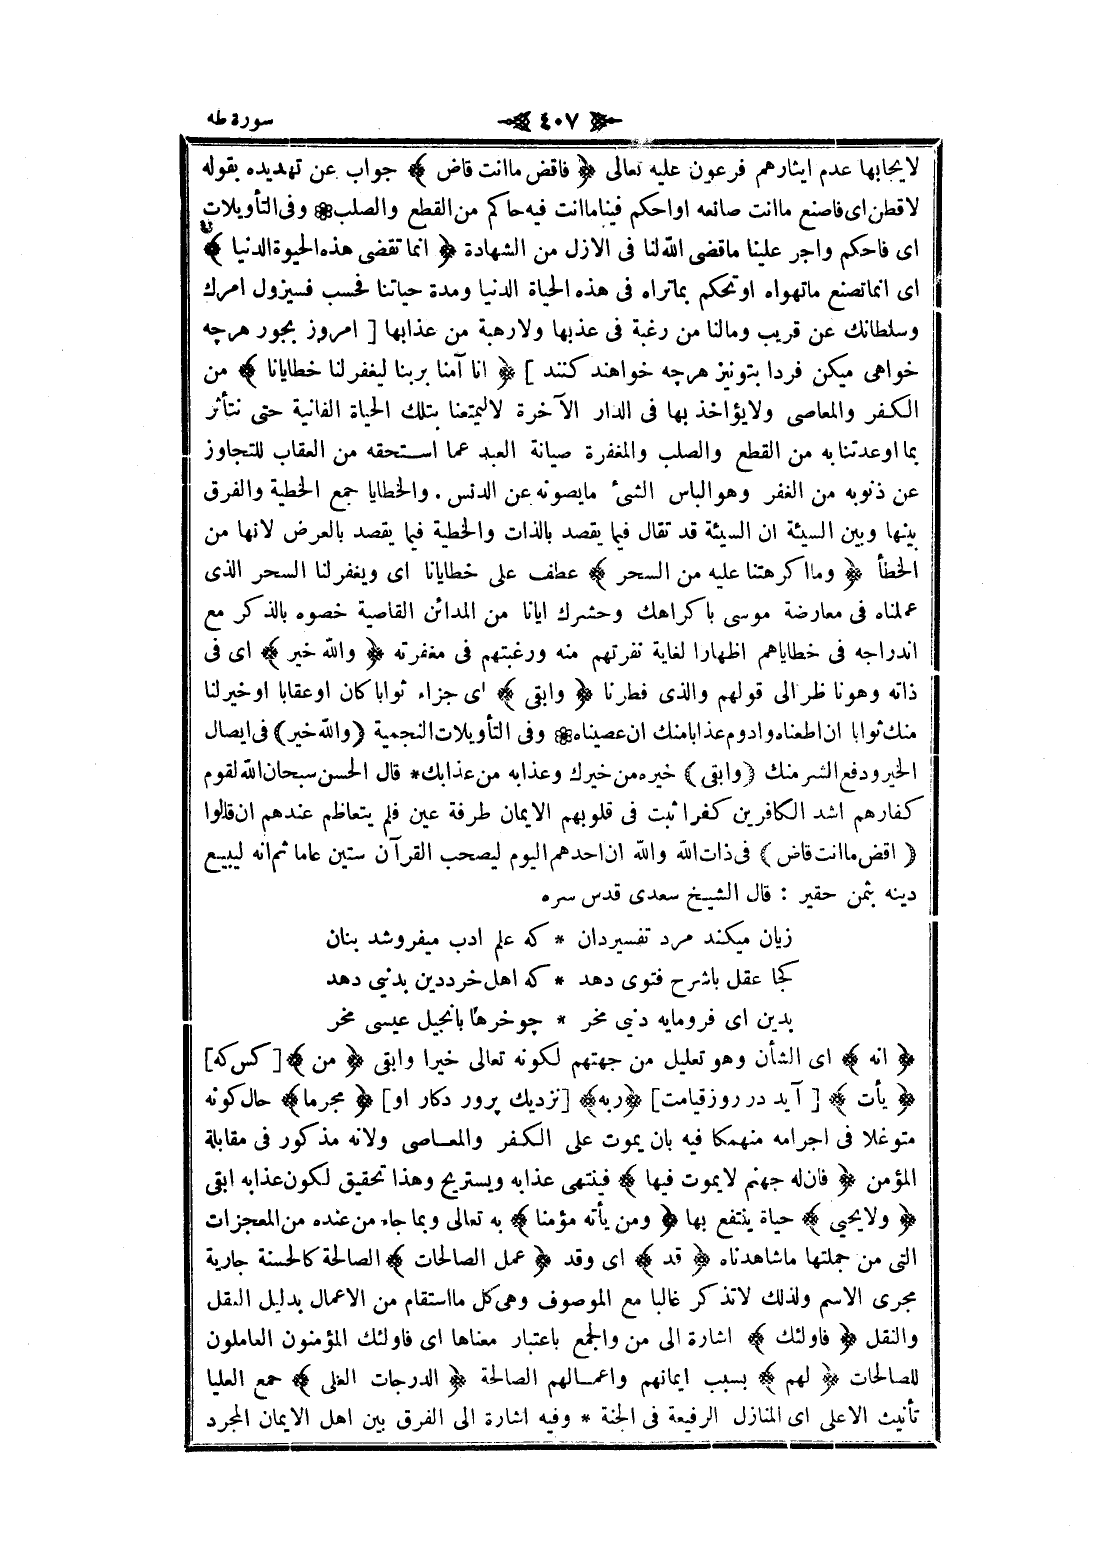 سورة طه
٤٠٧
لايجابها عدم ايثارهم فرعون عليه تعالى ﴿ فاقض ماانت قاض ﴾ جواب عن تهديده بقوله
لاقطن اى فاصنع ماانت صانعه اواحكم فينا ماانت فيه حاكم من القطع والصلب ❁ وفى التأويلات
اى فاحكم واجر علينا ماقضى الله لنا فى الازل من الشهادة ﴿ انما تقضى هذه الحيوة الدنيا ﴾
اى انما تصنع ماتهواه اوتحكم بماتراه فى هذه الحياة الدنيا ومدة حياتنا فحسب فسيزول امرك
وسلطانك عن قريب ومالنا من رغبة فى عذبها ولارهبة من عذابها [ امروز بجور هرچه
خواهى ميكن فردا بتونيز هرچه خواهند كنند ] ﴿ انا آمنا بربنا ليغفر لنا خطايانا ﴾ من
الكفر والمعاصى ولايؤاخذ بها فى الدار الآخرة لاليمتعنا بتلك الحياة الفانية حتى نتأثر
بما اوعدتنا به من القطع والصلب والمغفرة صيانة العبد عما استحقه من العقاب للتجاوز
عن ذنوبه من الغفر وهو الباس الشئ مايصونه عن الدنس . والخطايا جمع الخطية والفرق
بينها وبين السيئة ان السيئة قد تقال فيما يقصد بالذات والخطية فيما يقصد بالعرض لانها من
الخطأ ﴿ ومااكرهتنا عليه من السحر ﴾ عطف على خطايانا اى ويغفر لنا السحر الذى
عملناه فى معارضة موسى باكراهك وحشرك ايانا من المدائن القاصية خصوه بالذكر مع
اندراجه فى خطاياهم اظهارا لغاية نفرتهم منه ورغبتهم فى مغفرته ﴿ والله خير ﴾ اى فى
ذاته وهو ناظر الى قولهم والذى فطرنا ﴿ وابقى ﴾ اى جزاء ثوابا كان اوعقابا اوخير لنا
منك ثوابا ان اطعناه وادوم عذابا منك ان عصيناه ❁ وفى التأويلات النجمية (والله خير) فى ايصال
الخير ودفع الشر منك (وابقى) خيره من خيرك وعذابه من عذابك * قال الحسن سبحان الله لقوم
كفارهم اشد الكافرين كفرا ثبت فى قلوبهم الايمان طرفة عين فلم يتعاظم عندهم ان قالوا
( اقض ماانت قاض ) فى ذات الله والله ان احدهم اليوم ليصحب القرآن ستين عاما ثم انه ليبيع
دينه بثمن حقير : قال الشيخ سعدى قدس سره
زيان ميكند مرد تفسيردان * كه علم ادب ميفروشد بنان
كجا عقل باشرح فتوى دهد * كه اهل خرد دين بدنيى دهد
بدين اى فرومايه دنيى مخر * چو خرها بانجيل عيسى مخر
﴿ انه ﴾ اى الشأن وهو تعليل من جهتهم لكونه تعالى خيرا وابقى ﴿ من ﴾ [كس كه]
﴿ يأت ﴾ [ آيد در روز قيامت] ﴿ربه﴾ [نزديك پرور دكار او] ﴿ مجرما﴾ حال كونه
متوغلا فى اجرامه منهمكا فيه بان يموت على الكفر والمعاصى ولانه مذكور فى مقابلة
المؤمن ﴿ فان له جهنم لايموت فيها ﴾ فينتهى عذابه ويستريح وهذا تحقيق لكون عذابه ابقى
﴿ ولايحيى ﴾ حياة ينتفع بها ﴿ ومن يأته مؤمنا ﴾ به تعالى وبما جاء من عنده من المعجزات
التى من جملتها ماشاهدناه ﴿ قد ﴾ اى وقد ﴿ عمل الصالحات ﴾ الصالحة كالحسنة جارية
مجرى الاسم ولذلك لاتذكر غالبا مع الموصوف وهى كل مااستقام من الاعمال بدليل العقل
والنقل ﴿ فاولئك ﴾ اشارة الى من والجمع باعتبار معناها اى فاولئك المؤمنون العاملون
للصالحات ﴿ لهم ﴾ بسبب ايمانهم واعمالهم الصالحة ﴿ الدرجات العلى ﴾ جمع العليا
تأنيث الاعلى اى المنازل الرفيعة فى الجنة * وفيه اشارة الى الفرق بين اهل الايمان المجرد